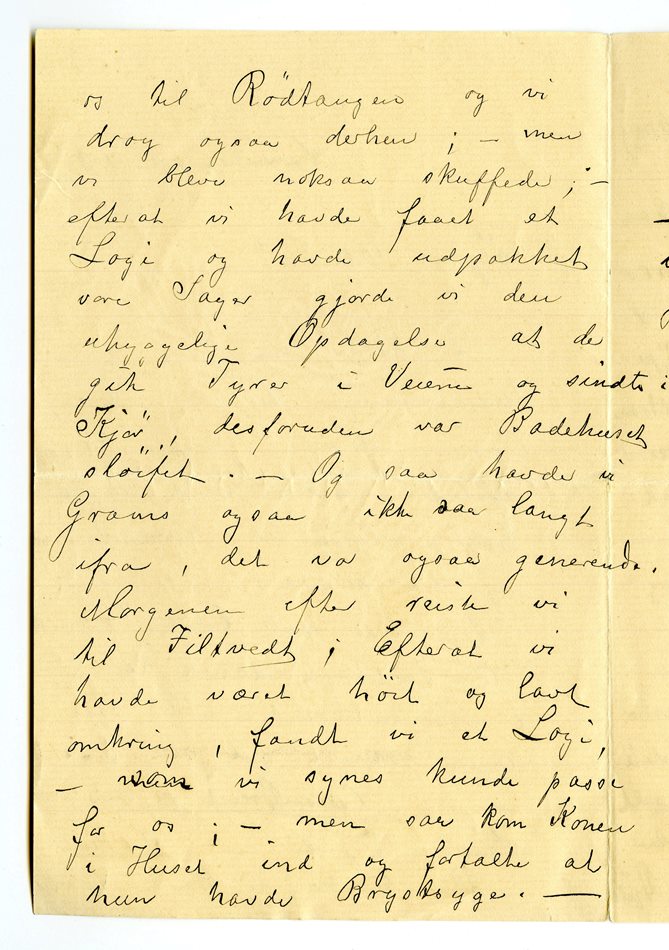 os til Rödtangen og vi
drog ogsaa derhen ; — men
vi bleve noksaa skuffede ; —
efterat vi havde faaet et
Logi og havde udpakket
vore Sager gjorde vi den
uhyggelige Opdagelse at de
gik Tyrer i Veiene og sindte
Kjör, desforuden var Badehuset
slöifet. — Og saa havde vi
Grams ogsaa ikke saa langt
ifra, det va ogsaa generende.
Morgenen efter reiste vi
til Filtvedt ; Efterat vi
havde været höit og lavt
omkring, fandt vi et Logi,
— som vi synes kunde passe
for os ; — men saa kom Konen
i Huset ind og fortalte at
hun havde Brystsyge. —